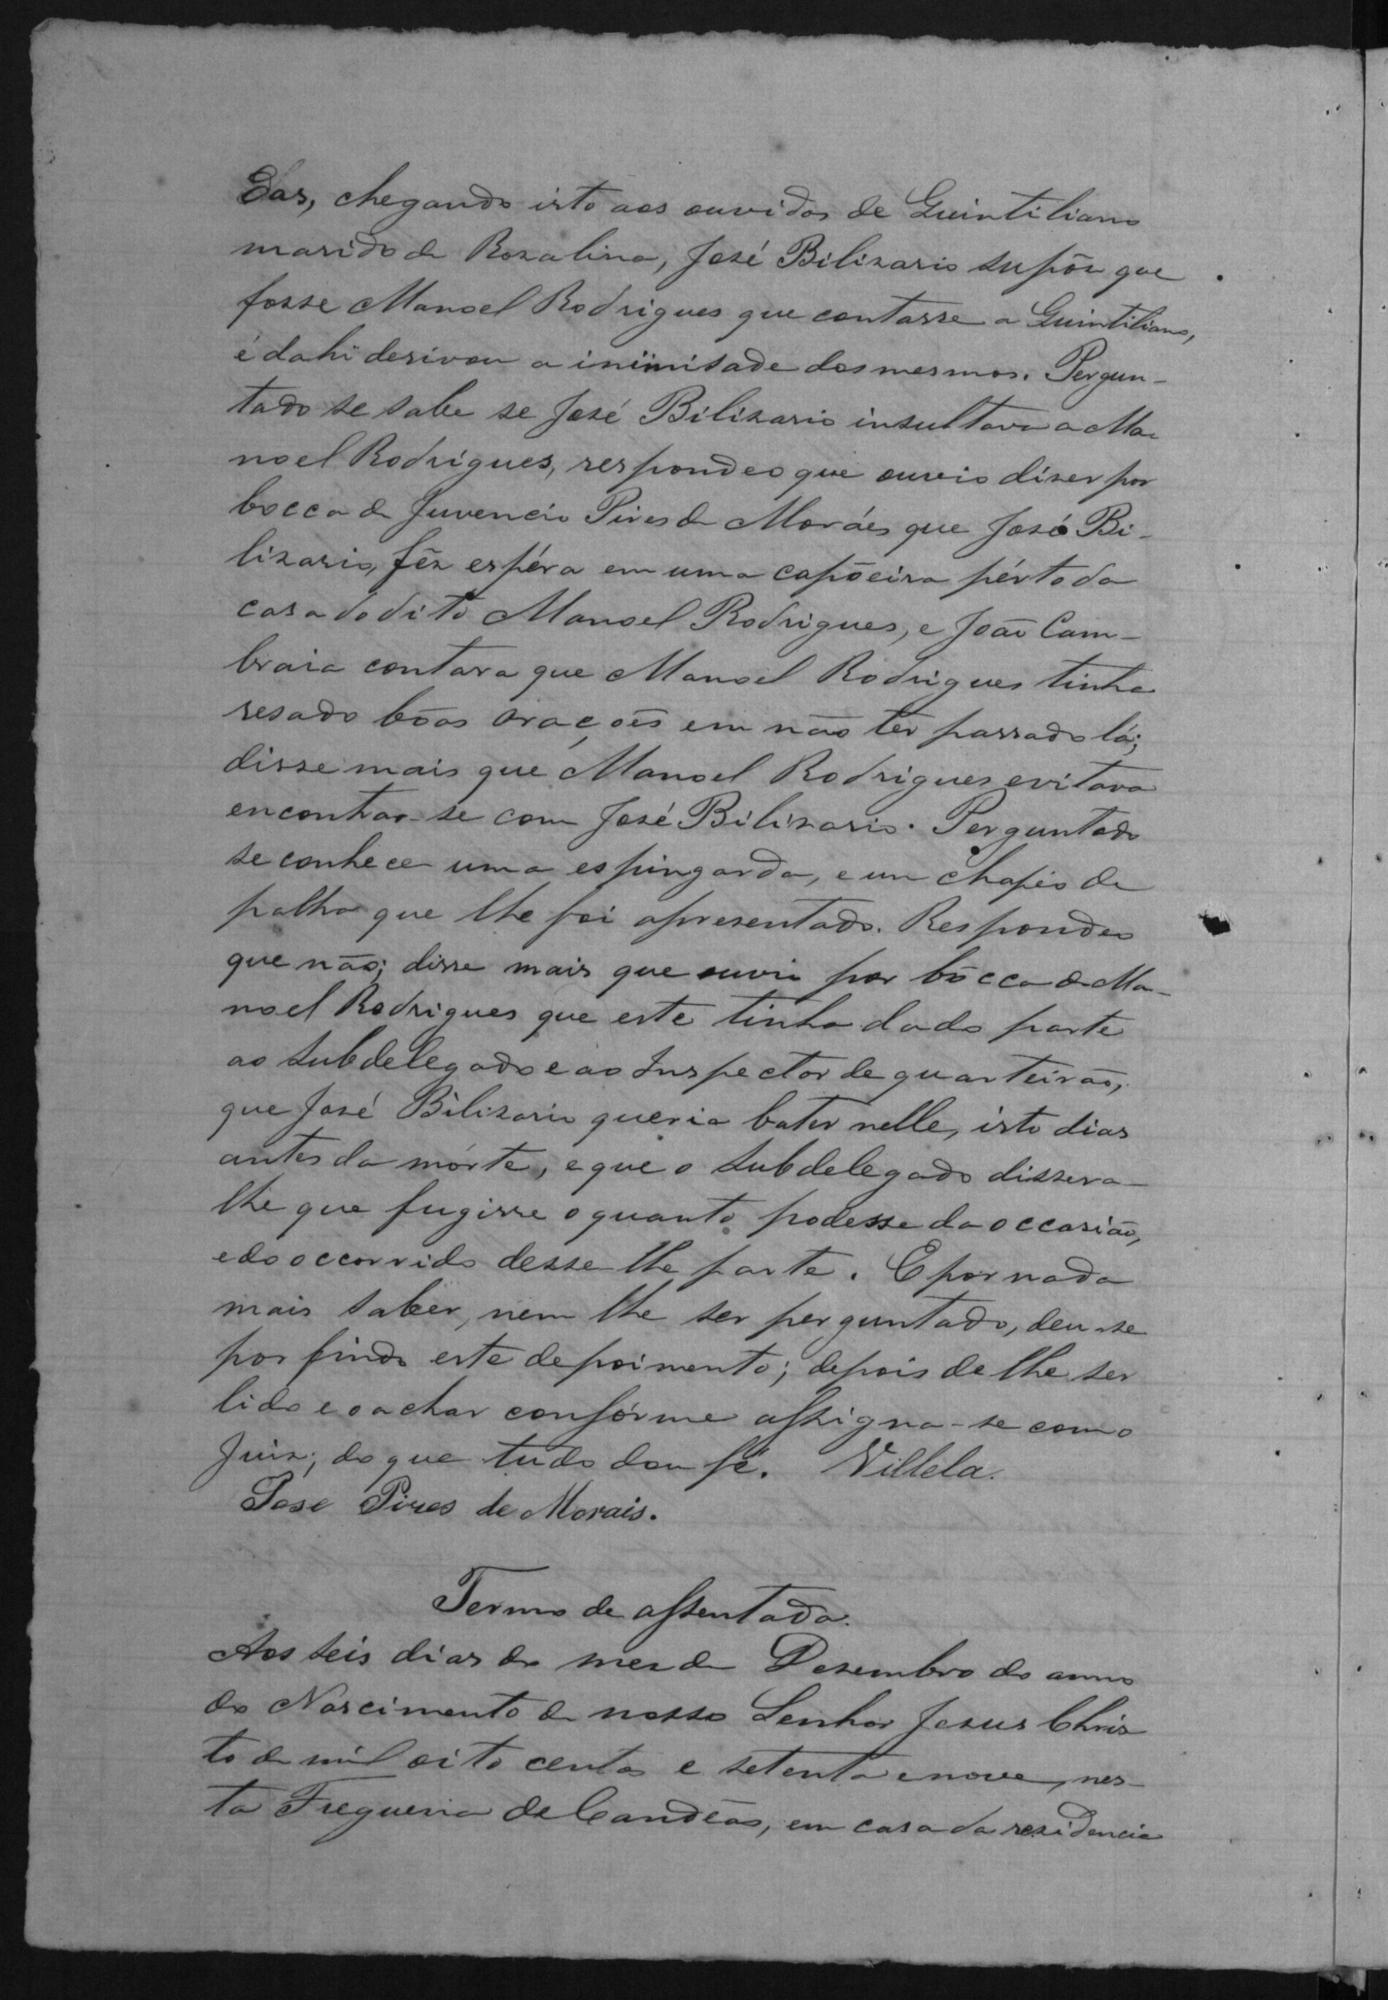 das, chegando isto aos ouvidos de Quintiliano
marido de Rozalina, José Bilizario supôz que
fosse Manoel Rodrigues que contasse a Quintiliano,
é dahi derivou a inimisade dos mesmos. Pergun-
tado se sabe se José Bilizario insultava a Ma-
noel Rodrigues, respondeo que ouvio diser por
bocca de Juvencio Pires de Moráes que José Bi-
lizario, fêz espéra em uma capõeira pérto da
casa do dito Manoel Rodrigues, e João Cam-
braia contara que Manoel Rodrigues tinha
resado bôas orações em não ter passado lá;
disse mais que Manoel Rodrigues evitava
encontrar-se com José Bilizario. Perguntado
se conhece uma espingarda, e um chapéo de
palha que lhe foi apresentado. Respondeo
que não; disse mais que ouvio por bôcca de Ma-
noel Rodrigues que este tinha dado parte
ao Subdelegado e ao Inspector de quarteirão,
que José Bilizario queria bater nelle, isto dias
antes da mórte, e que o Subdelegado dissera-
lhe que fugisse o quanto podesse da occasião,
e do occorrido desse lhe parte. E por nada
mais saber, nem lhe ser perguntado, deu-se
por findo este depoimento; depois de lhe ser
lido e o achar confórme assigna-se com o
Juiz; do que tudo dou fé. Villela.
Jose Pires de Morais.
Termo de assentada.
Aos seis dias do mez de Dezembro do anno
do Nascimento de nosso Senhor Jesus Chris
to de mil oito centos e setenta e nove, nes-
ta Freguesia de Candêas, em casa da residencia